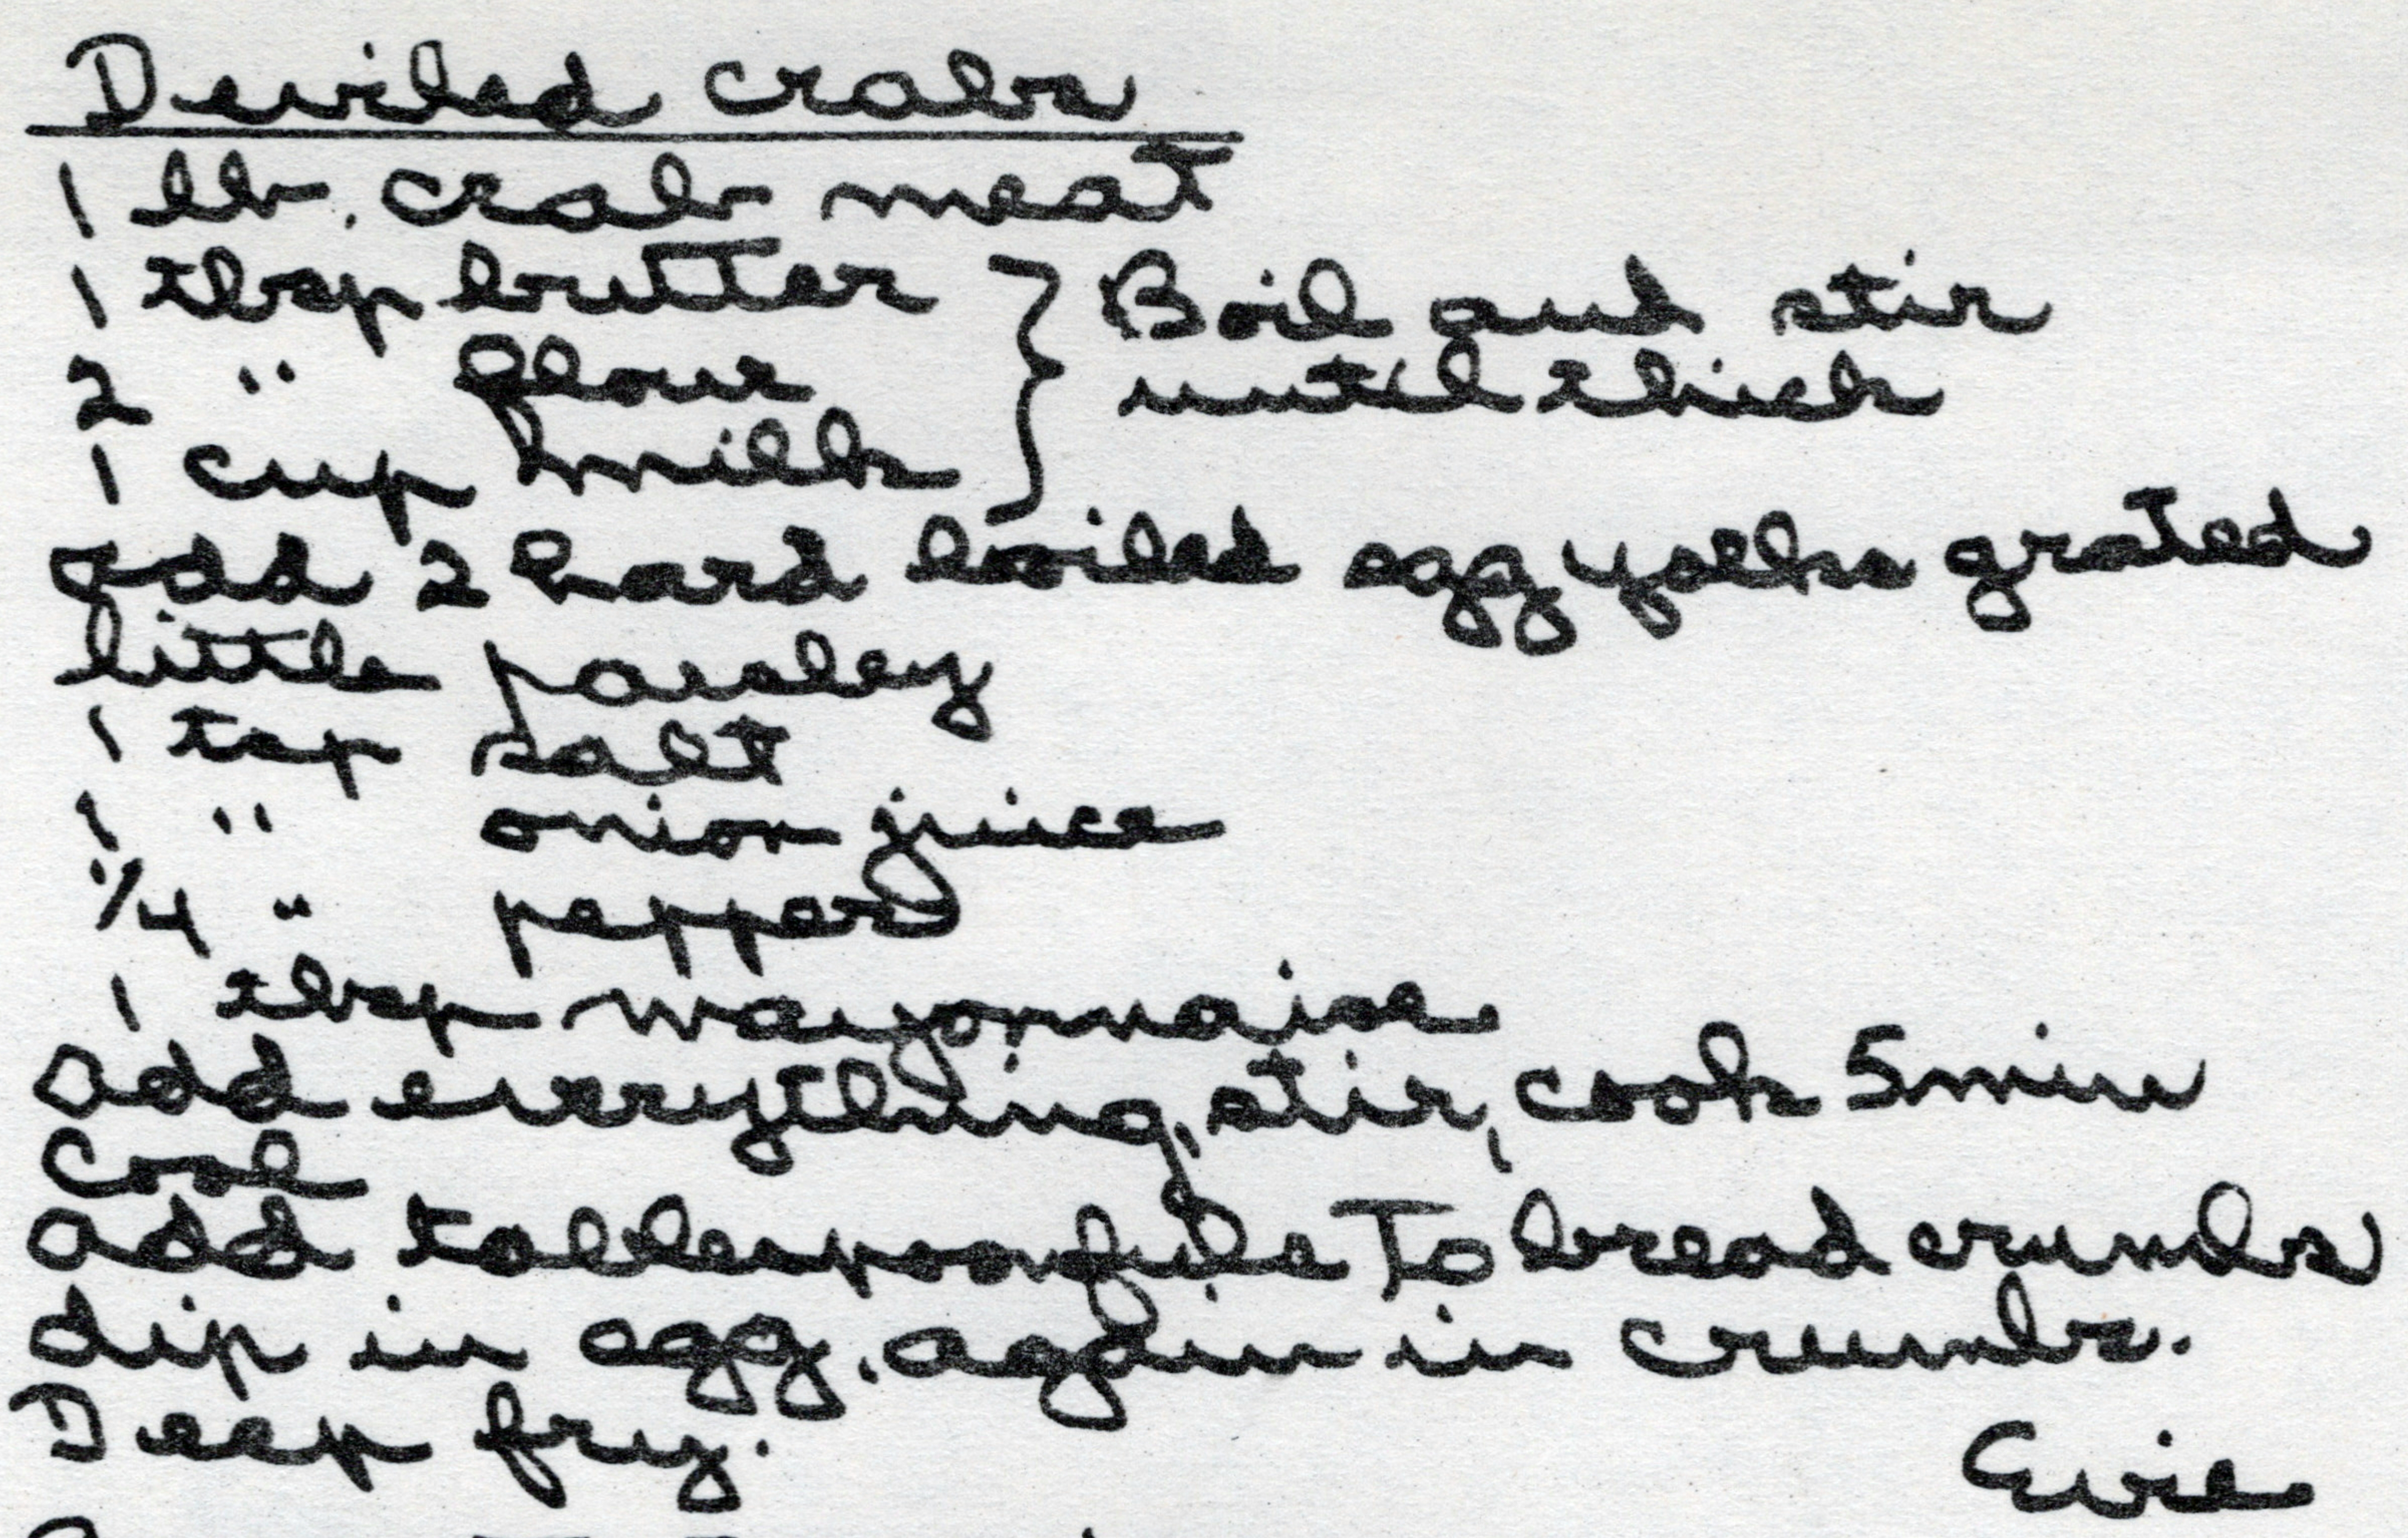 Deviled crabs
1 lb. crab meat
1 tbsp butter } Boil and stir
2 " flour until thick
1 cup milk
Add 2 hard boiled egg yolks grated
little parsley
1 tsp salt
1 " onion juice
1/4 " pepper
1 tbsp mayonnaise
Add everything, stir, cook 5 min
Cool
Add tablespoonfuls To bread crumbs
dip in egg, again in crumbs.
Deep fry.
Evie